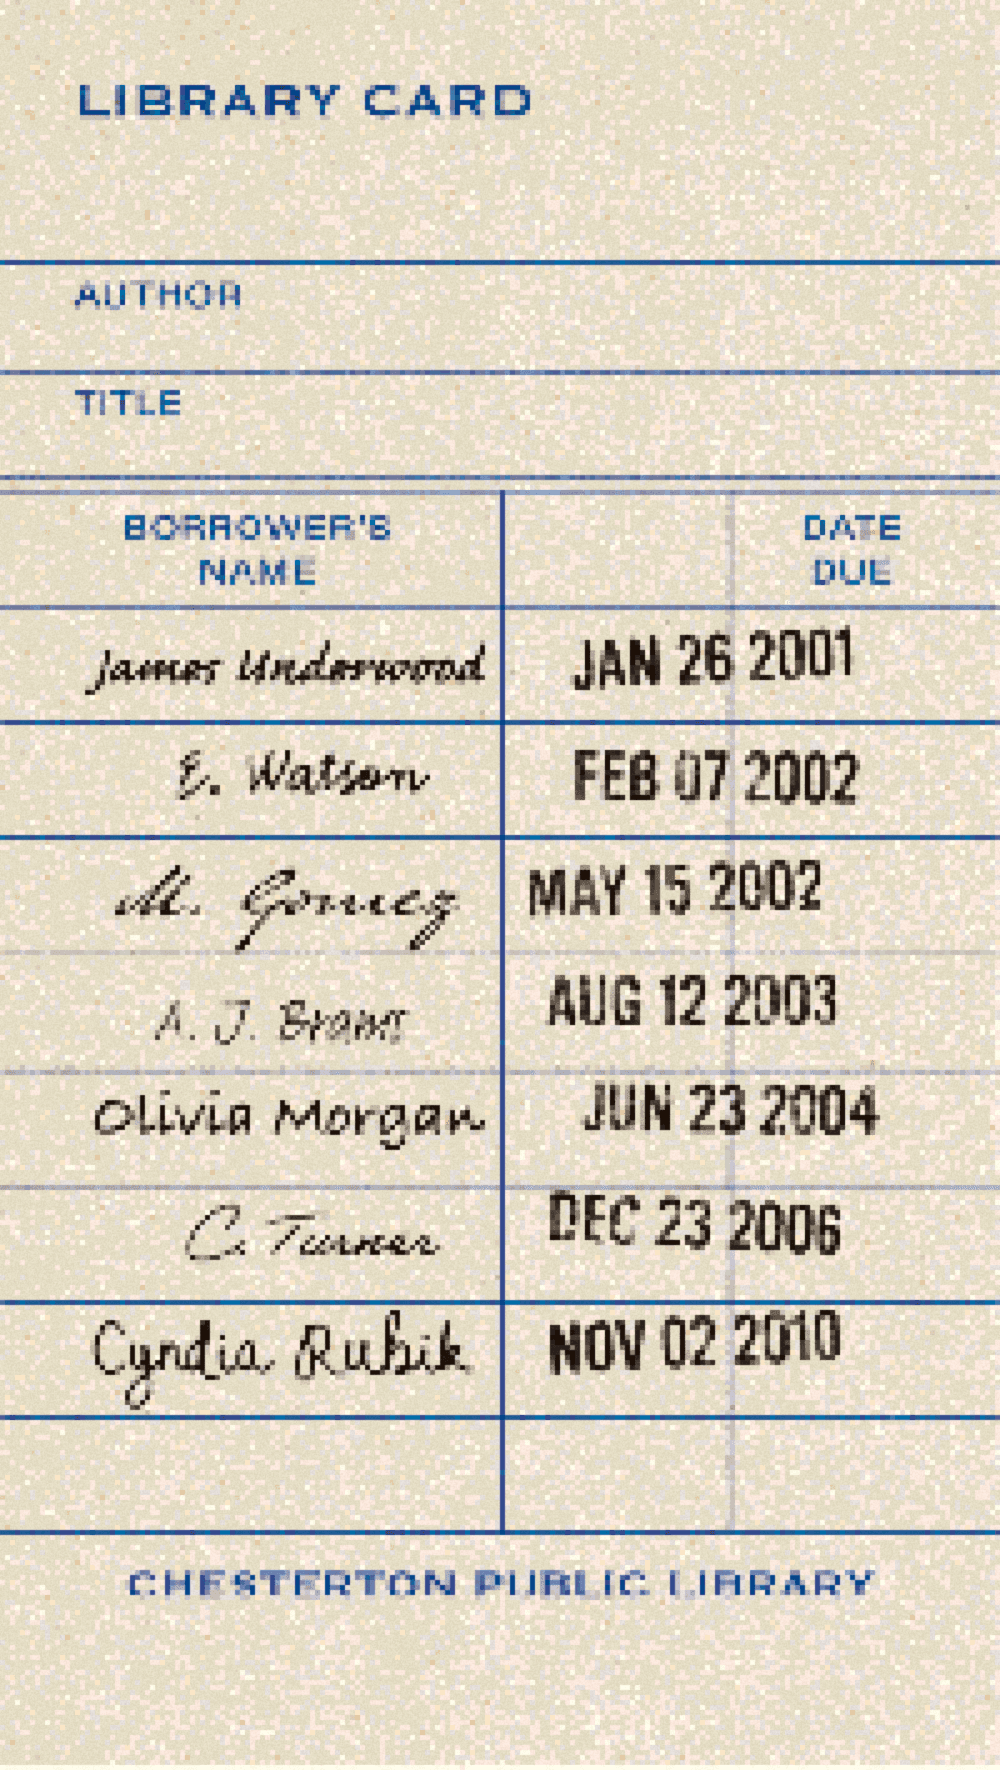 LIBRARY CARD
AUTHOR
TITLE
BORROWER'S
NAME
DATE
DUE
James Underwood JAN 26 2001
E. Watson FEB 07 2002
M. Gomez MAY 15 2002
A. J. Brams AUG 12 2003
Olivia Morgan JUN 23 2004
C. Turner DEC 23 2006
Cyndia Rubik NOV 02 2010
CHESTERTON PUBLIC LIBRARY